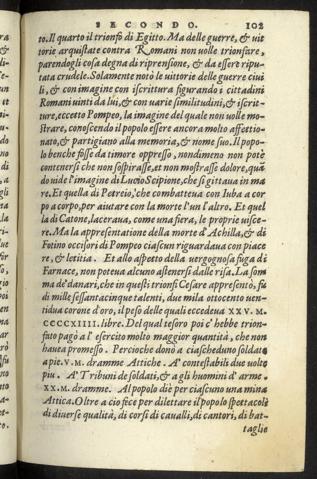 SECONDO. 102
to. Il quarto il trionfo di Egitto. Ma delle guerre, & uit
torie acquistate contra Romani non uolle trionfare,
parendogli cosa degna di riprensione, & da essere ripu-
tata crudele. Solamente notò le uittorie delle guerre ciui
li, & con imagine con iscrittura figurando i cittadini
Romani uinti da lui, & con uarie similitudini, & iscrit-
ture, eccetto Pompeo, la imagine del quale non uolle mo-
strare, conoscendo il popolo essere ancora molto affettio-
nato, & partigiano alla memoria, & nome suo. Il popo-
lo benche fosse da timore oppresso, nondimeno non potè
contenersi che non sospirasse, et non mostrasse dolore, quā
do uide l'imagine di Lucio Scipione, che si gittaua in ma
re. Et quella di Petreio, che combatteua con Iuba a cor
po a corpo, per aiutare con la morte l'un l'altro. Et quel
la di Catone, laceraua, come una fiera, le proprie uisce-
re. Ma la appresentatione della morte d'Achilla, & di
Fotino occisori di Pompeo ciascun riguardaua con piace
re, & letitia. Et allo aspetto della uergognosa fuga di
Farnace, non poteua alcuno astenersi dalle risa. La som
ma de' danari, che in questi trionfi Cesare appresentò, fu
di mille sessantacinque talenti, due mila ottocento uen-
tidua corone d'oro, il peso delle quali eccedeua XXV. M.
CCCCXIIII. libre. Del qual tesoro poi c'hebbe trion-
fato pagò a l'esercito molto maggior quantità, che non
haueua promesso. Percioche donò a ciascheduno soldato
a pie. V. M. dramme Attiche. A' contestabili due uolte
piu. A' Tribuni de soldati, & a gli huomini d'arme
XX. M. dramme. Al popolo diè per ciascuno una mina
Attica. Oltre a cio fece per dilettare il popolo spettacoli
di diuerse qualità, di corsi di caualli, di cantori, di bat-
taglie